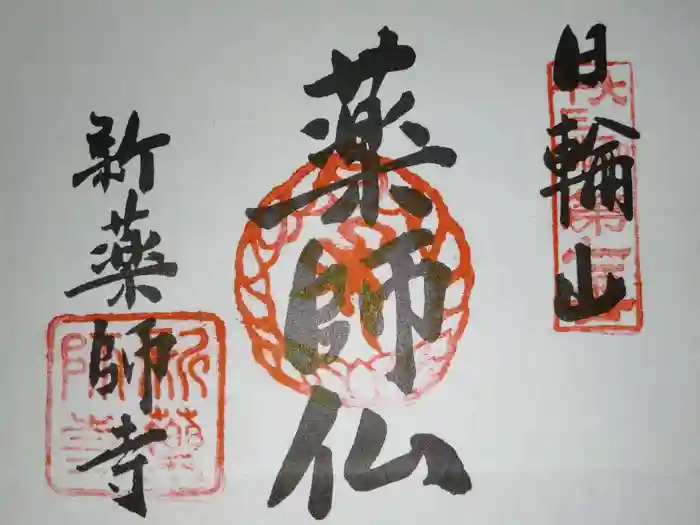 日輪山
薬師仏
新薬師寺